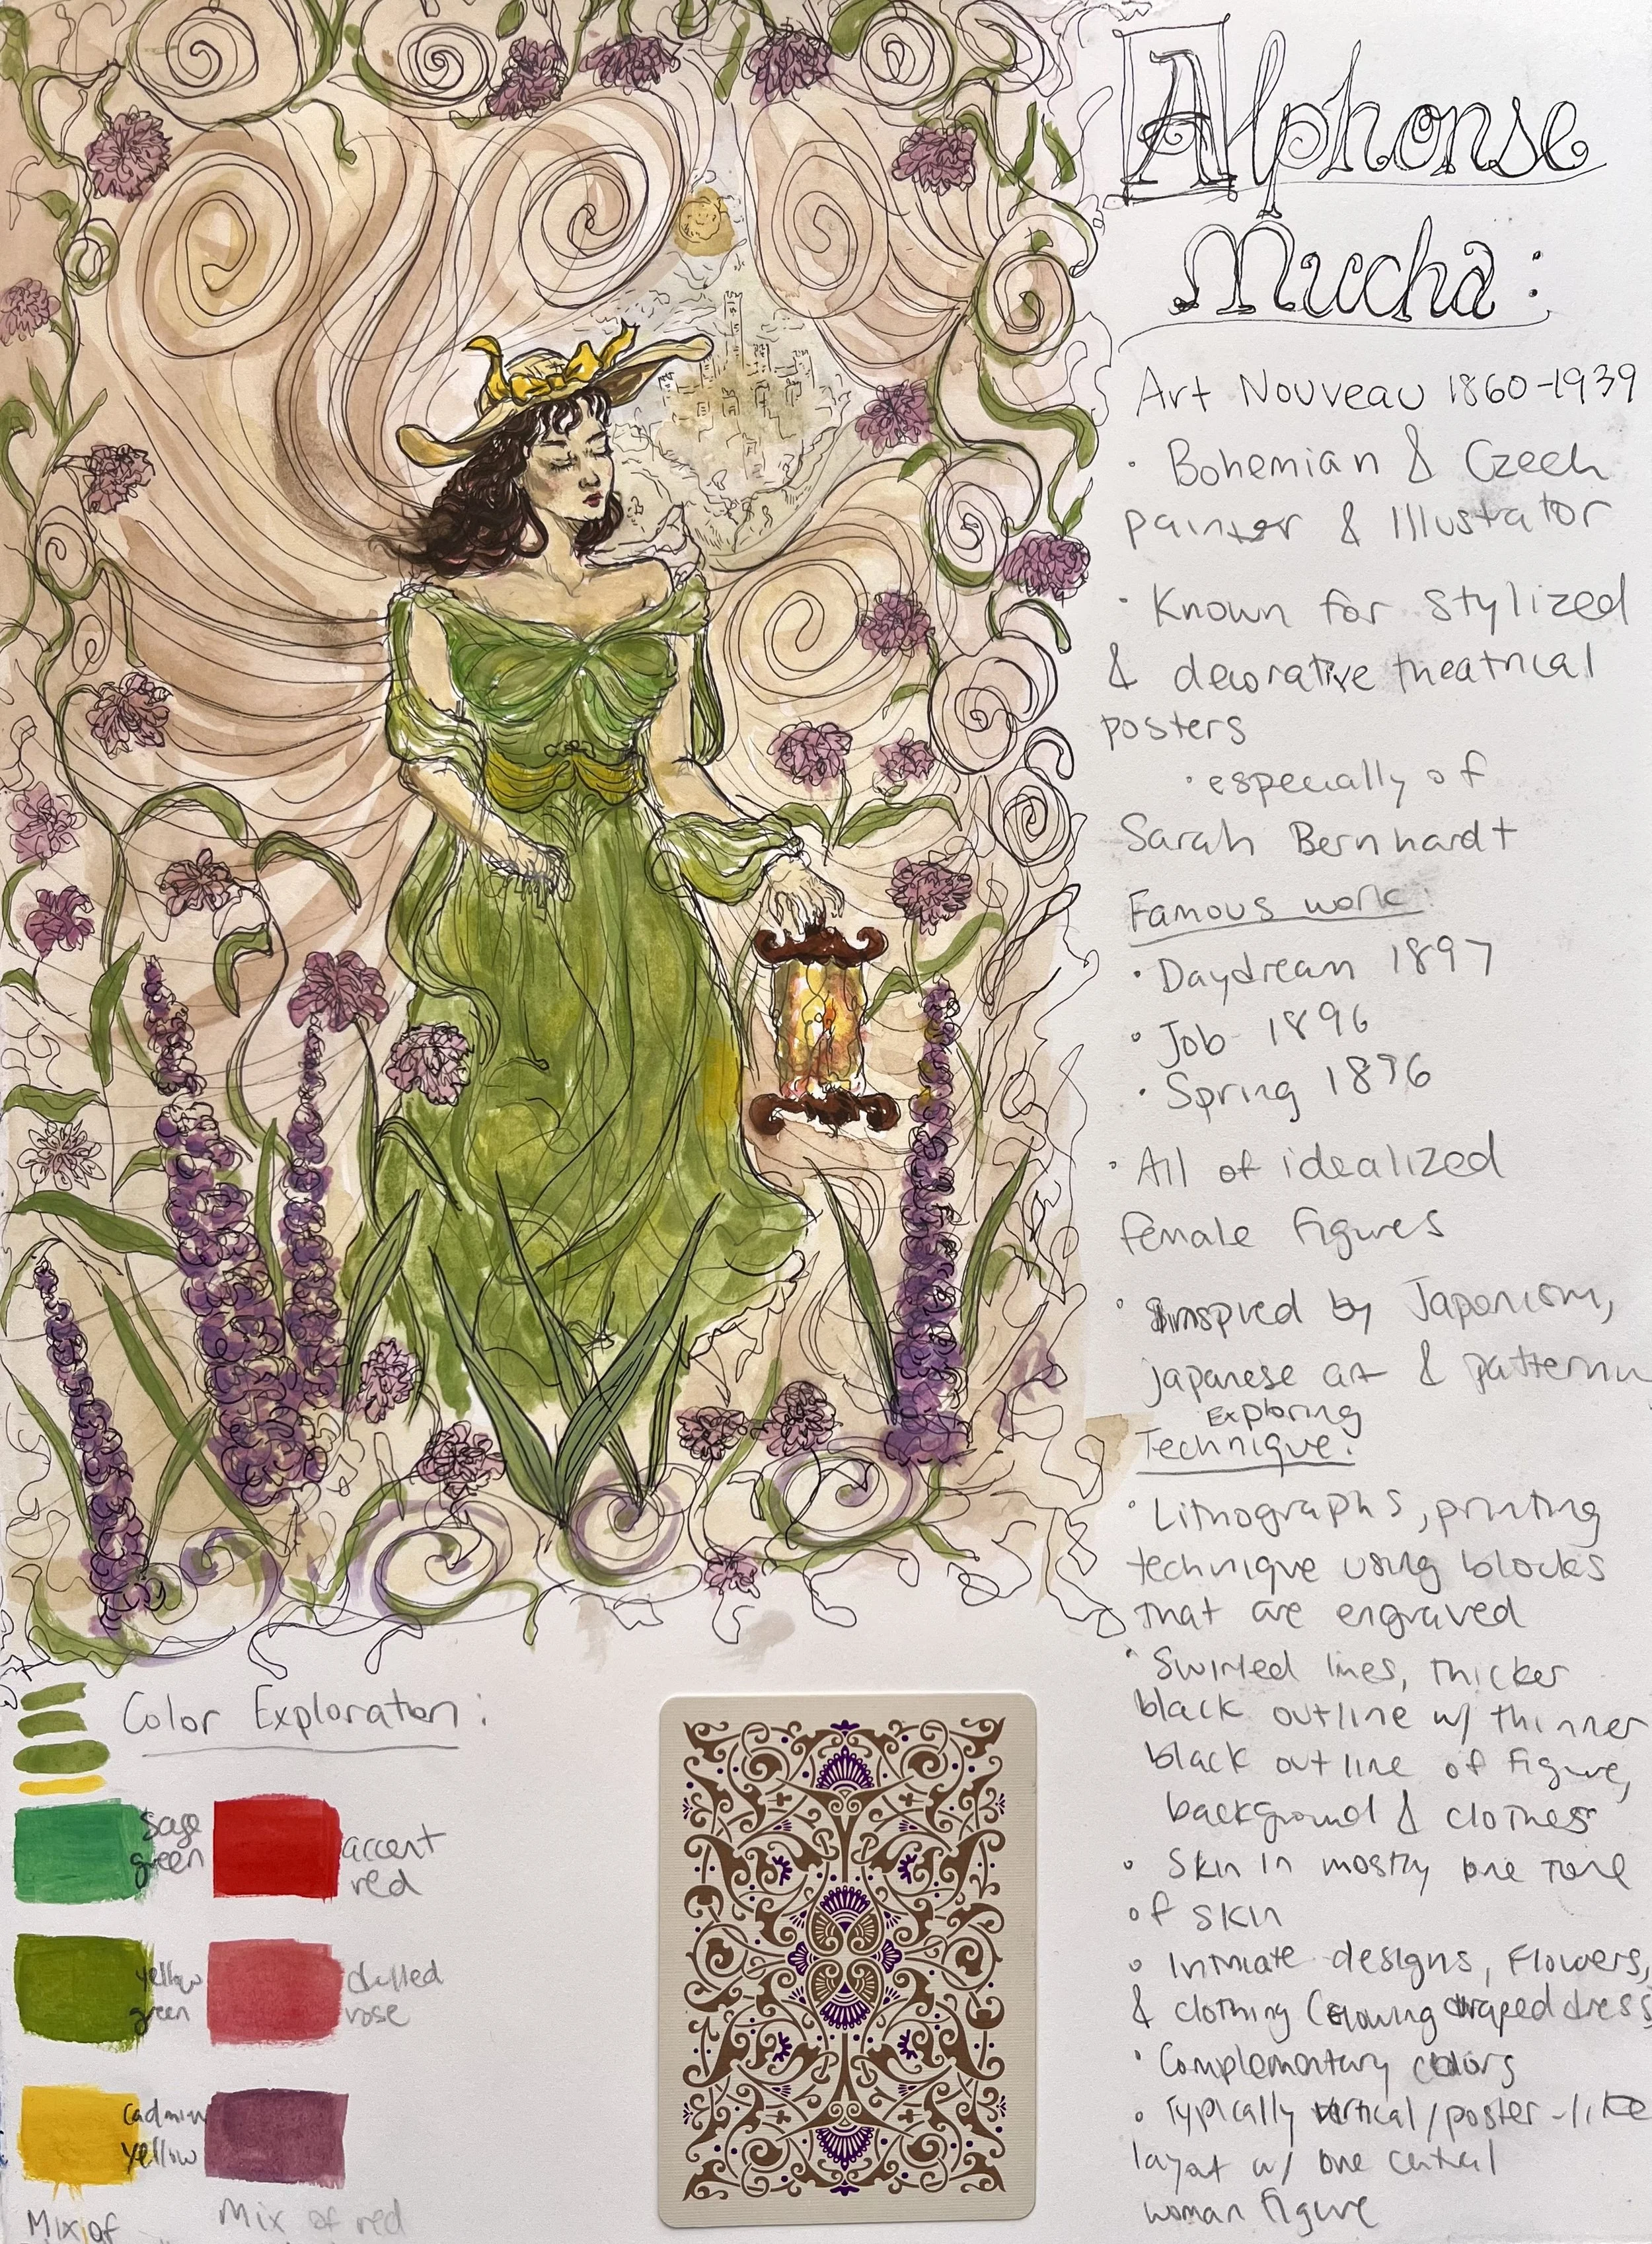 Alphonse
Mucha:
Art Nouveau 1860-1939
· Bohemian & Czech
painter & Illustrator
· Known for stylized
& decorative theatrical
posters
· especially of
Sarah Bernhardt
Famous work:
· Daydream 1897
· Job 1896
· Spring 1896
· All of idealized
female figures
· inspired by Japonism,
Japanese art &
Exploring
Technique:
· Lithographs, printing
technique using blocks
that are engraved
· Swirled lines, thicker
black outline w/ thinner
black outline of figure,
background & clothes
· Skin in mostly one tone
of skin
· Intimate designs, Flowers,
& clothing (flowing draped dress
· Complementary colors
· Typically vertical/poster-like
layout w/ one central
woman figure
Color Exploration:
Sage
green
accent
red
yellow
green
dulled
rose
yellow
Mix of
Mix of red